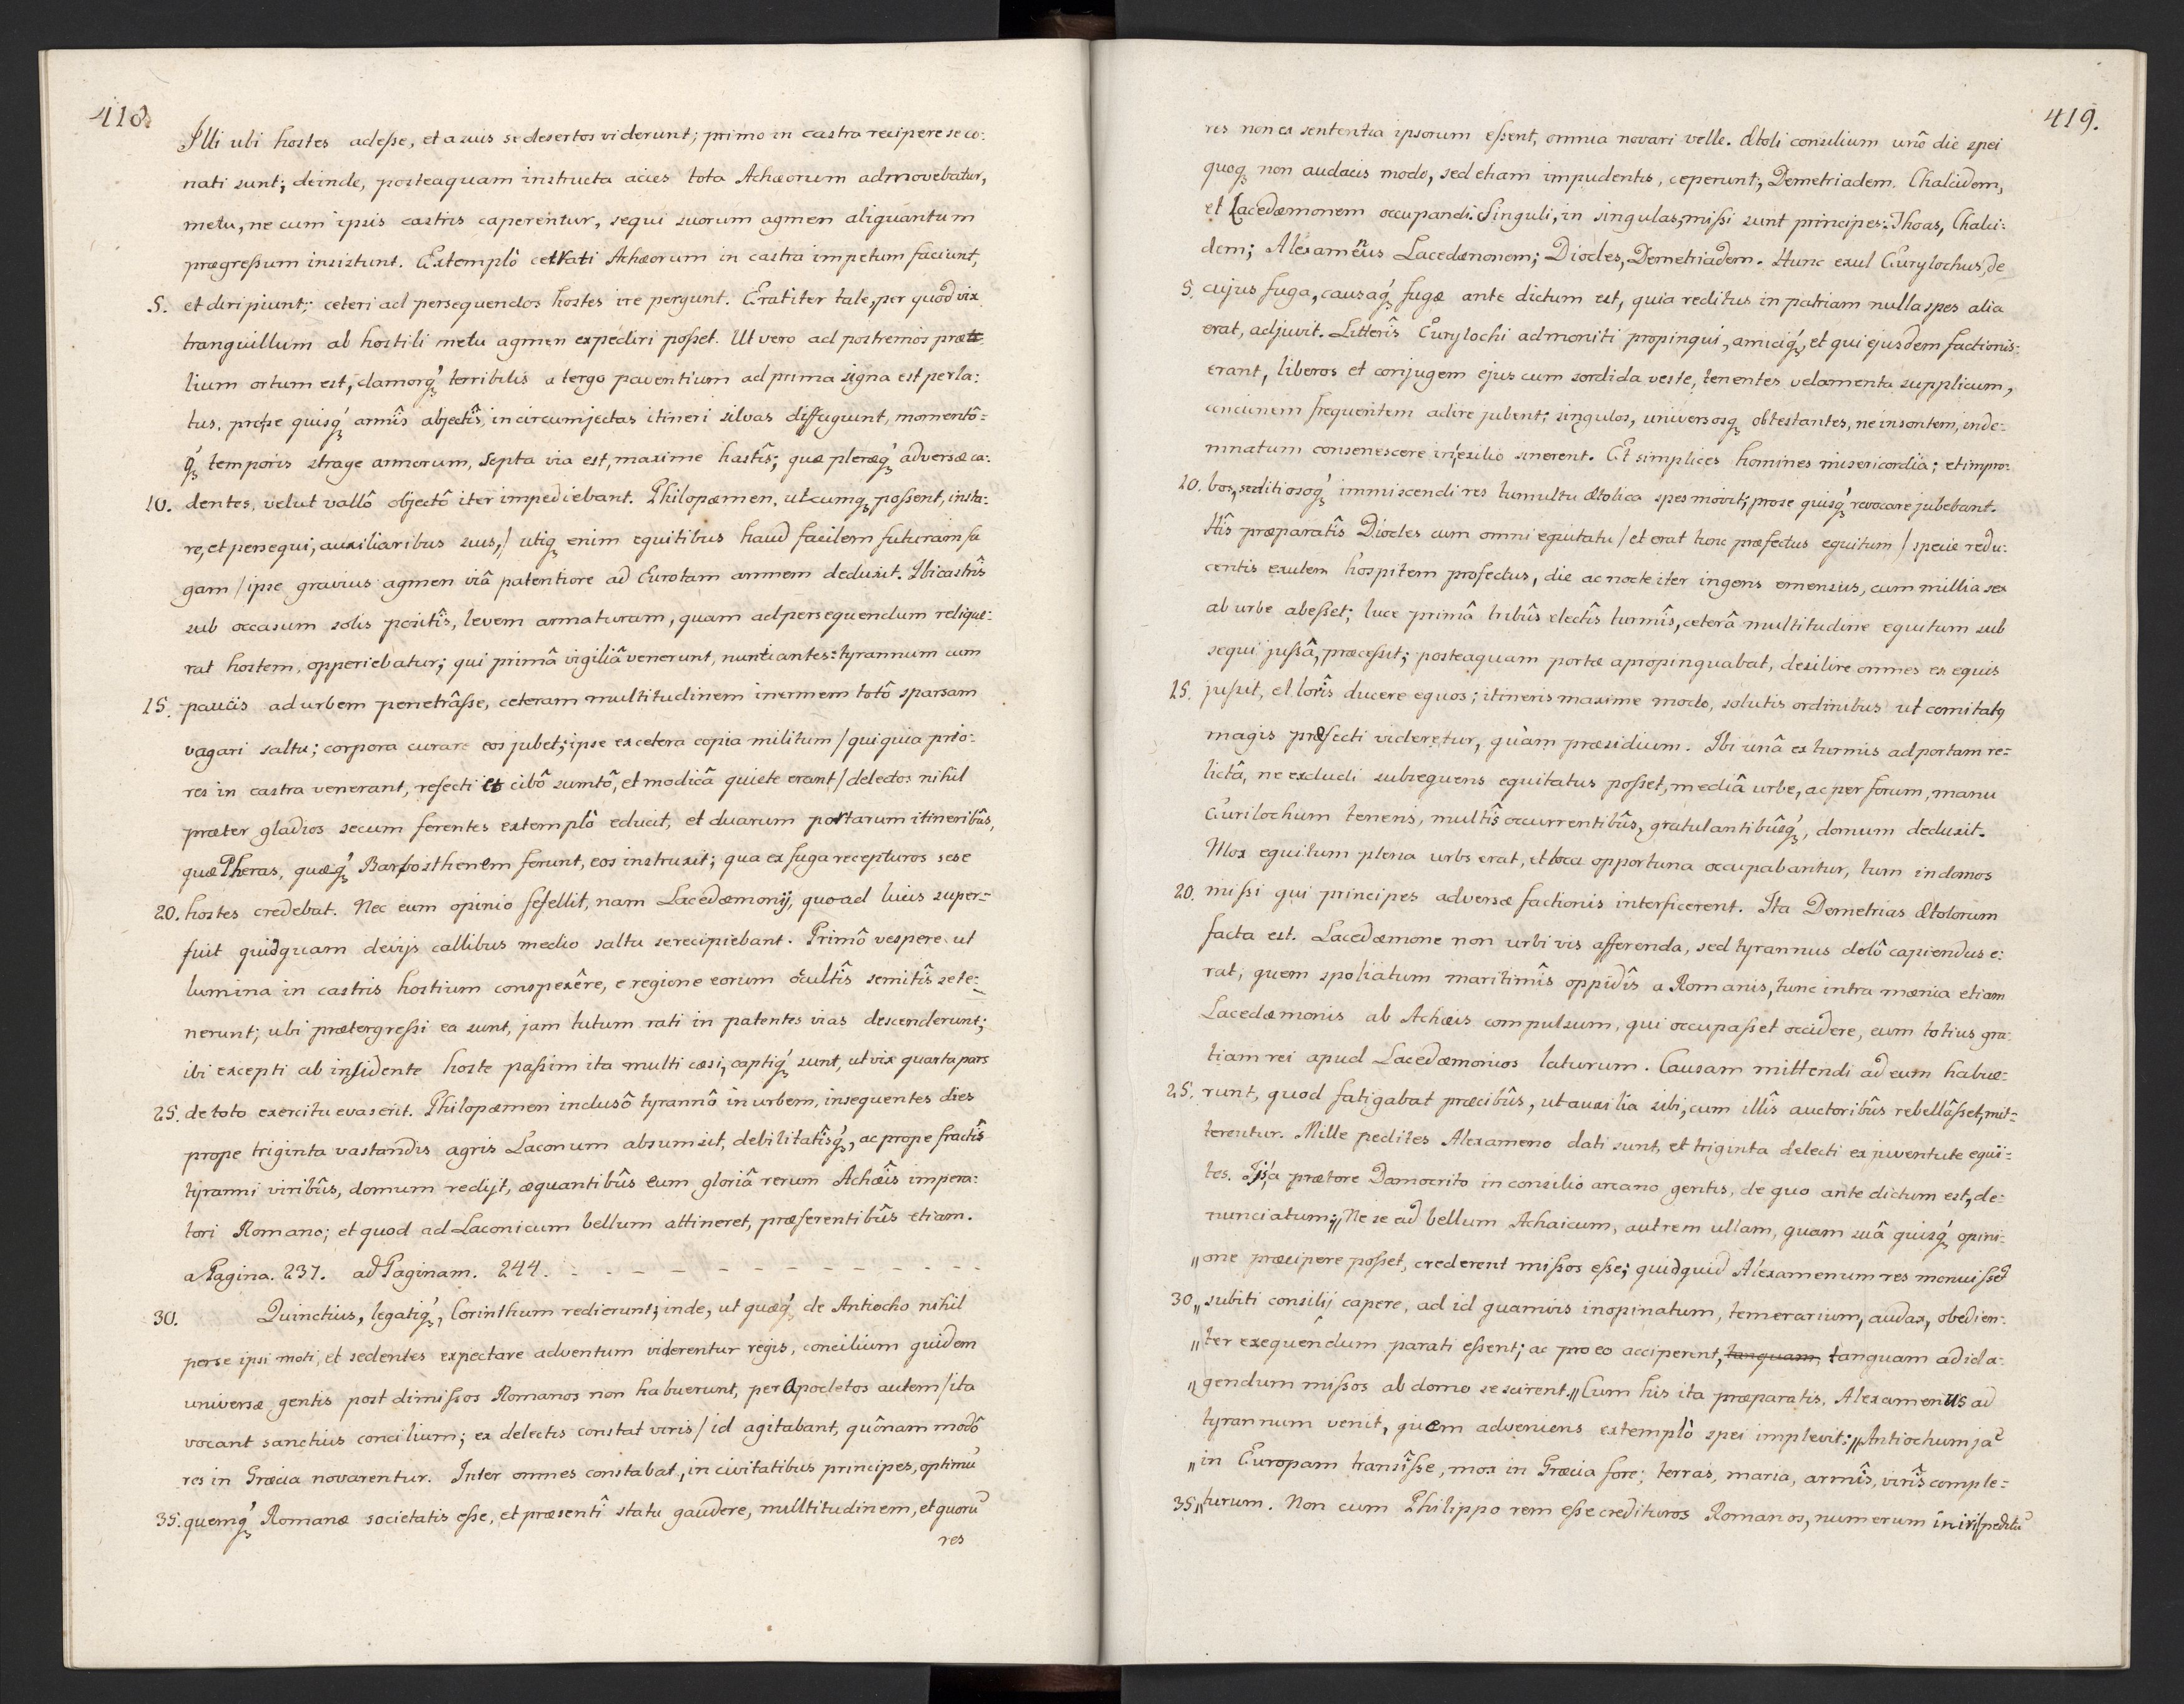 418.
Illi ubi hostes adesse, et a suis se desertos viderunt; primo in castra recipere se co:
nati sunt; deinde, posteaquam instructa acies tota Achæorum admovebatur,
metu, ne cum ipsis castris caperentur, sequi suorum agmen aliquantum
prægressum insistunt. Extemplô cetrati Achæorum in castra impetum faciunt,
5. et diripiunt; ceteri ad persequendos hostes ire pergunt. Erat iter tale, per quod vix
tranquillum ab hostili metu agmen expediri posset. Ut vero ad postremos præ
lium ortum est, clamorq́ꝫ terribilis a tergo paventium ad prima signa est perla:
tus, prose quisq́ꝫ armîs abjectîs, in circumjectas itineri silvas diffugiunt, momentô=
q́ꝫ temporis strage armorum, septa via est, maxime hastîs; quæ pleræq́ꝫ adversæ ca:
10. dentes, velut vallô objectô iter impediebant. Philopæmen, utcumqꝫ possent, insta:
re, et persequi, auxiliaribus suis, / utiqꝫ enim equitibus haud facilem futuram fu
gam / ipse gravius agmen viâ patentiore ad Eurotam amnem deduxit. Ibi castrîs
sub occasum solis positîs, levem armaturam, quam ad persequendum relique:
rat hostem, opperiebatur; qui primâ vigiliâ venerunt, nuntiantes: tyrannum cum
15. paucis ad urbem penetrâsse, ceteram multitudinem inermem totô sparsam
vagari saltu; corpora curare eos jubet; ipse ex cetera copia militum / qui quia prio-
res in castra venerant, refecti et cibô sumtô, et modicâ quiete erant / delectos nihil
præter gladios secum ferentes extemplô educit, et duarum portarum itineribûs,
quæ Pheras, quæq́ꝫ Barbosthenem ferunt, eos instruxit; qua ex fuga recepturos sese
20. hostes credebat. Nec eum opinio fefellit, nam Lacedæmonij, quoad lucis super=
fuit quidquam devijs callibus medio saltu se recipiebant. Primô vespere ut
lumina in castris hostium conspexêre, e regione eorum ocultîs semitîs se te=
nerunt; ubi prætergressi ea sunt, jam tutum rati in patentes vias descenderunt;
ibi excepti ab insidente hoste passim ita multi cæsi, captiq́ꝫ sunt, ut vix quarta pars
25. de toto exercitu evaserit. Philopæmen inclusô tyrannô in urbem, insequentes dies
prope triginta vastandis agris Laconum absumsit, debilitatîsq́ꝫ, ac prope fractîs
tyranni viribûs, domum redijt, æquantibûs eum gloriâ rerum Achæîs impera:
tori Romano; et quod ad Laconicum bellum attineret, præferentibûs etiam.
a Pagina. 237. ad Paginam. 244. - - - - - - - - - - - -
30. Quinctius, legatiq́ꝫ, Corinthum redierunt; inde, ut quæq́ꝫ de Antiocho nihil
perse ipsi moti, et sedentes expectare adventum viderentur regis, concilium quidem
universæ gentis post dimissos Romanos non habuerunt, per Apocletos autem / ita
vocant sanctius concilium; ex delectis constat viris / id agitabant, quônam modô
res in Græcia novarentur. Inter omnes constabat, in civitatibus principes, optimũ
35. quemq́ꝫ Romanæ societatis esse, et præsentî statu gaudere, mulltitudinem, et quorũ
res
419.
res non ex sententia ipsorum essent, omnia novari velle. Ætoli consilium unô die spei
quoqꝫ non audacis modo, sed etiam impudentis, ceperunt; Demetriadem, Chalcidem,
et Lacedæmonem occupandi. Singuli, in singulas, missi sunt principes: Thoas, Chalci:
dem; Alexamẽus Lacedænonem; Diocles, Demetriadem. Hunc exul Eurylochus, de
5. cujus fuga, causaq́ꝫ fugæ ante dictum est, quia reditus in patriam nulla spes alia
erat, adjuvit. Litterîs Eurylochi admoniti propinqui, amiciq́ꝫ, et qui ejusdem factionis:
erant, liberos et conjugem ejus cum sordida veste, tenentes velamenta supplicum,
concionem frequentem adire jubent; singulos, universosqꝫ obtestantes, ne insontem, inde:
mnatum consenescere in exilio sinerent. Et simplices homines misericordia; et impro:
10. bos, seditiosoqꝫ́ immiscendi res tumultu Ætolica spes movit; prose quisq́ꝫ revocare jubebant.
Hîs præparatîs Diocles cum omni equitatu / et erat tunc præfectus equitum / specie redu:
centis exulem hospitem profectus, die ac nocte iter ingens emensus, cum millia sex
ab urbe abesset; luce primâ tribûs electîs turmîs, ceterâ multitudine equitum sub
sequi jussâ, præcessit; posteaquam portæ apropinquabat, desilire omnes ex equis
15. jussit, et lorîs ducere equos; itineris maxime modo, solutis ordinibus ut comitatꝰ
magis præfecti videretur, quàm præsidium. Ibi unâ ex turmis ad portam re=
lictâ, ne excludi subsequens equitatus posset, mediâ urbe, ac per forum, manu
Eurilochum tenens, multîs occurrentibûs, gratulantibûsq́ꝫ, domum deduxit.
Mox equitum plena urbs erat, et loca opportuna occupabantur, tum in domos
20. missi qui principes adversæ factionis interficerent. Ita Demetrias Ætolorum
facta est. Lacedæmone non urbi vis afferenda, sed tyrannus dolô capiendus e:
rat, quem spoliatum maritimîs oppidîs a Romanis, tunc intra mænia etiam
Lacedæmonis ab Achæis compulsum, qui occupasset occidere, eum totius gra:
tiam rei apud Lacedæmonios laturum. Causam mittendi ad eum habue:
25. runt, quod fatigabat præcibûs, ut auxilia sibi, cum illîs auctoribûs rebellâsset, mit-
terentur. Mille pedites Alexameno dati sunt, et triginta delecti ex juventute equi=
tes. Ijs a prætore Damocrito in consilio arcano gentis, de quo ante dictum est, de:
nunciatum; „ Ne se ad bellum Achaicum, aut rem ullam, quam suâ quisq́ꝫ opini-
„ one præcipere posset, crederent missos esse; quidquid Alexamenum res monuisset
30. „ subiti consilij capere, ad id quamvis inopinatum, temerarium, audax, obedien:
„ ter exequendum parati essent; ac pro eo acciperent, tanquam, tanquam ad id a:
„ gendum missos ab domo se scirent. „ Cum his ita præparatis, Alexamenus ad
tyrannum venit, quem adveniens extemplò spei implevit; „ Antiochum jã
„ in Europam transîsse, mox in Græcia fore; terras, maria, armîs, virîs comple=
35. „ turum. Non cum Philippo rem esse credituros Romanos, numerum iniri peditũ